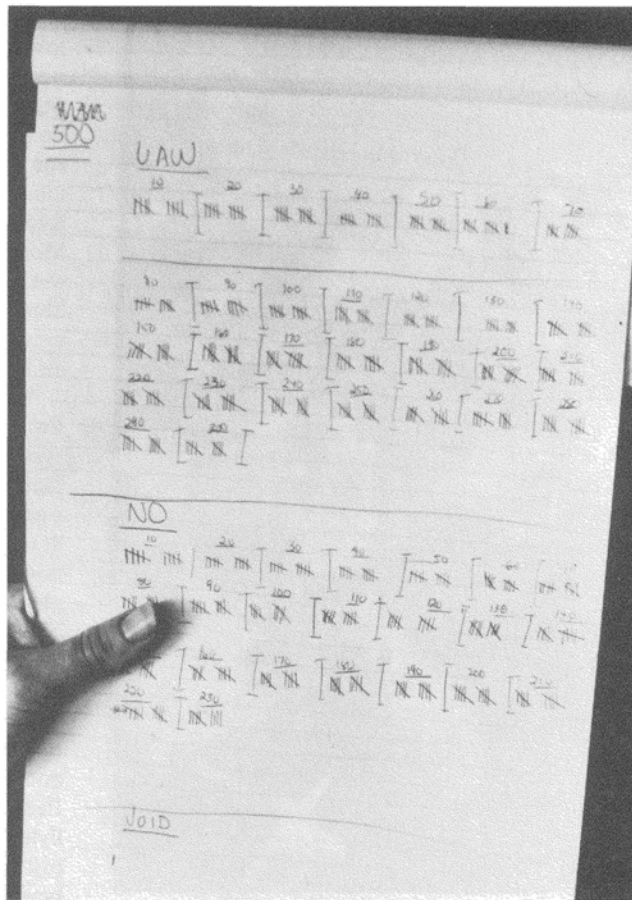 500
UAW
10 20 30 40 50 60 70
80 90 100 110 120 130 140
150 160 170 180 190 200 210
220 230 240 250
NO
10 20 30 40 50 60
80 90 100 110 120 130 140
160 170 180 190 200 210
220 230
VOID